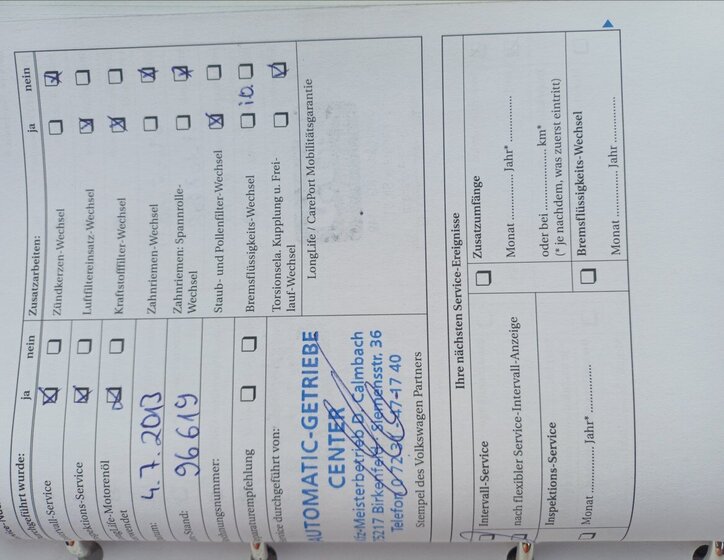 wurde:
ja nein
Intervall-Service
Inspektions-Service
LongLife-Motorenöl
4.7.2013
96619
Reparaturempfehlung
durchgeführt von:
AUTOMATIC-GETRIEBE
CENTER
Kfz-Meisterbetrieb D. Calmbach
75217 Birkenfeld · Siemensstr. 36
Telefon
47 17 40
Stempel des Volkswagen Partners
Zusatzarbeiten: ja nein
Zündkerzen-Wechsel
Luftfiltereinsatz-Wechsel
Kraftstofffilter-Wechsel
Zahnriemen-Wechsel
Zahnriemen: Spannrolle-
Wechsel
Staub- und Pollenfilter-Wechsel
Bremsflüssigkeits-Wechsel
Torsionsela. Kupplung u. Frei-
lauf-Wechsel
LongLife / CarePort Mobilitätsgarantie
Ihre nächsten Service-Ereignisse
Intervall-Service
nach flexibler Service-Intervall-Anzeige
Inspektions-Service
Monat .............. Jahr* ..............
Zusatzumfänge
Monat .............. Jahr* ..............
oder bei .............. km*
(* je nachdem, was zuerst eintritt)
Bremsflüssigkeits-Wechsel
Monat .............. Jahr ..............